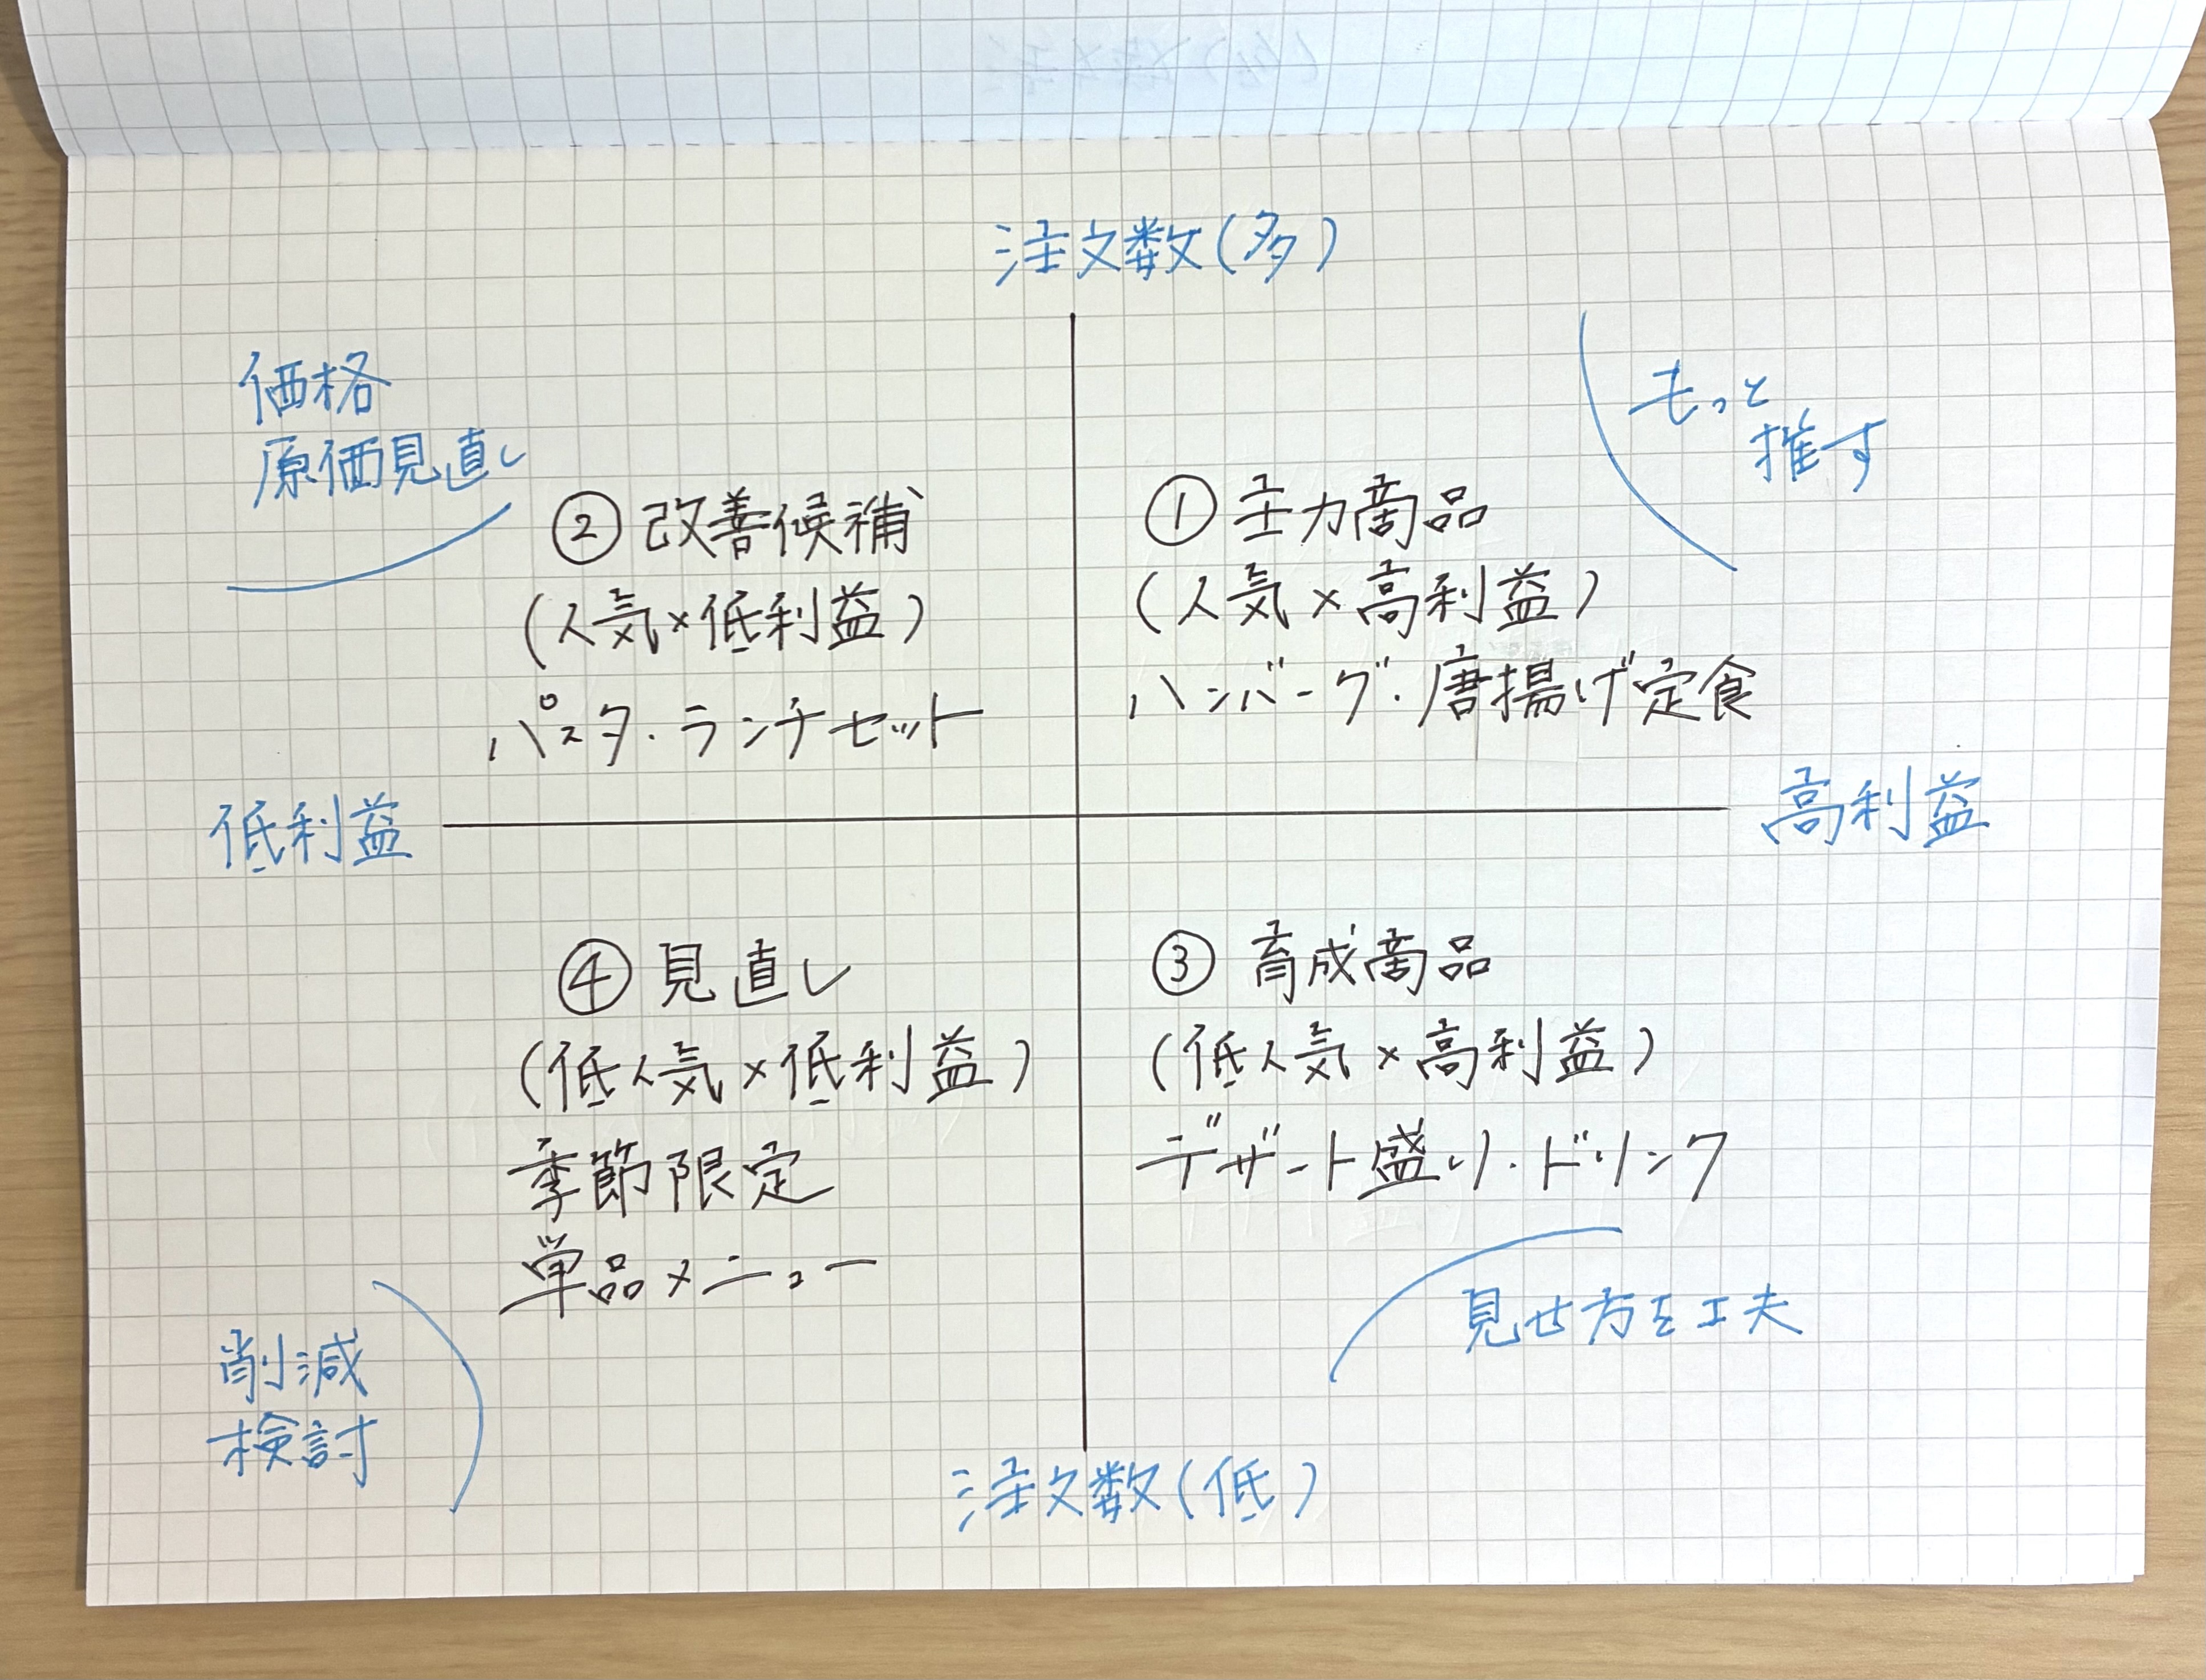 注文数(多)
価格
原価見直し
もっと
推す
②改善候補
(人気×低利益)
パスタ・ランチセット
①主力商品
(人気×高利益)
ハンバーグ・唐揚げ定食
低利益
高利益
④見直し
(低人気×低利益)
季節限定
単品メニュー
③育成商品
(低人気×高利益)
デザート盛り・ドリンク
削減
検討
見せ方を工夫
注文数(低)